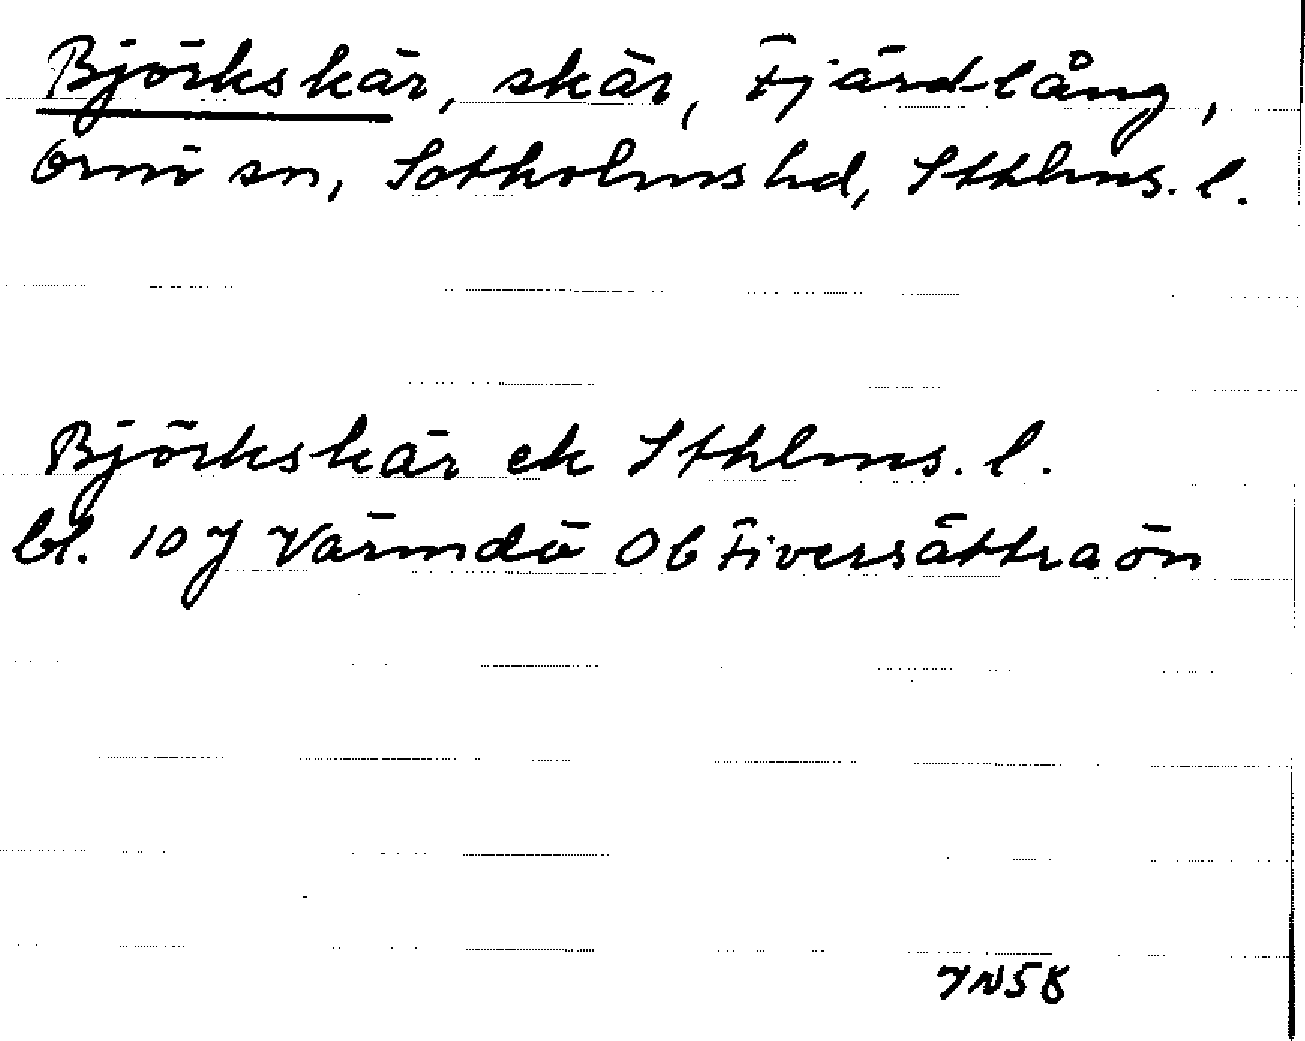 Björkskär, skär, Fjärdlång,
Ornö sn, Sotholms hd, Sthlms. l.
Björkskär ek Sthlms. l.
bl. 10J Värmdö Ob Fiversättraön
JN58